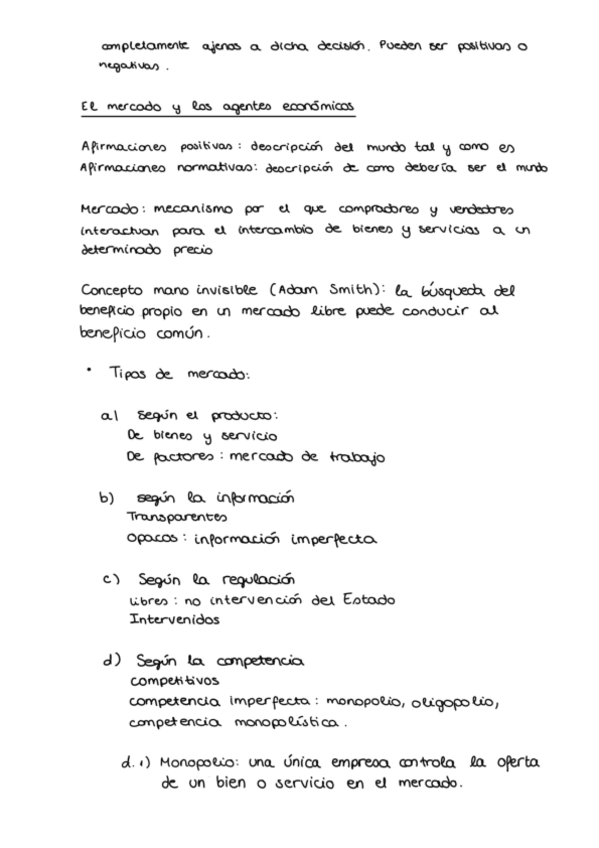 completamente ajenos a dicha decisión. Pueden ser positivas o
negativas.
El mercado y los agentes económicos
Afirmaciones positivas: descripción del mundo tal y como es
Afirmaciones normativas: descripción de como debería ser el mundo
Mercado: mecanismo por el que compradores y vendedores
interactuan para el intercambio de bienes y servicios a un
determinado precio
Concepto mano invisible (Adam Smith): la búsqueda del
beneficio propio en un mercado libre puede conducir al
beneficio común.
• Tipos de mercado:
a) Según el producto:
De bienes y servicio
De factores: mercado de trabajo
b) según la información
Transparentes
opacos: información imperfecta
c) Según la regulación
Libres: no intervención del Estado
Intervenidos
d) Según la competencia
competitivos
competencia imperfecta: monopolio, oligopolio,
competencia monopolística.
d.1) Monopolio: una única empresa controla la oferta
de un bien o servicio en el mercado.